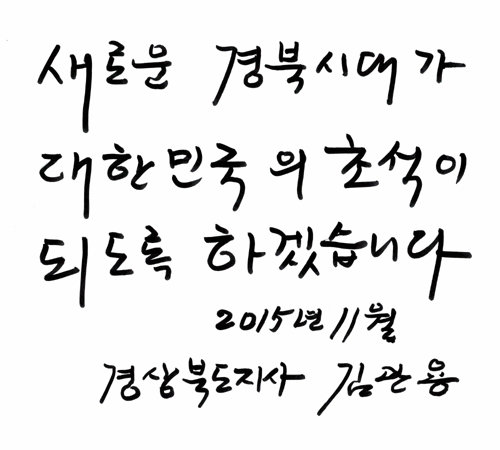 새로운 경북시대가
대한민국의 초석이
되도록 하겠습니다
2015년 11월
경상북도지사 김관용